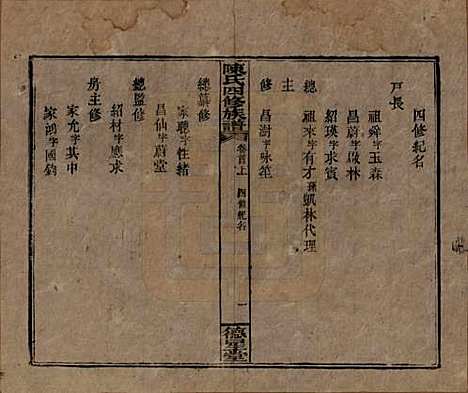 四修紀名
戸長
祖舜字玉森
昌蔚字啟林
紹瑛字求賓
總
祖來字有才孫凱林代理
主
修
昌澍字味笙
陳氏四修族譜
卷首上
四修紀名
一
德星堂
總纂修
家聰字性緒
昌仙字蔚堂
總監修
紹材字應求
房主修
家允字其中
家鴻字國鈞